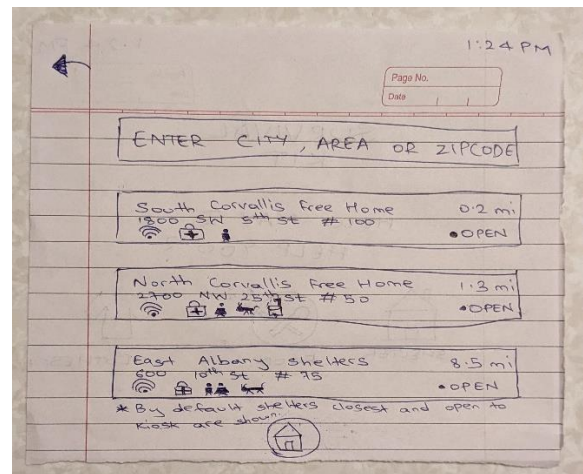 1:24 PM
Page No.
Date
ENTER CITY, AREA OR ZIPCODE
South Corvallis Free Home 0.2 mi
1800 SW 5th St # 100
•OPEN
North Corvallis Free Home 1.3 mi
2700 NW 25th St # 50
•OPEN
East Albany Shelters 8.5 mi
600 10th St # 75
•OPEN
* By default shelters closest and open to
kiosk are shown.